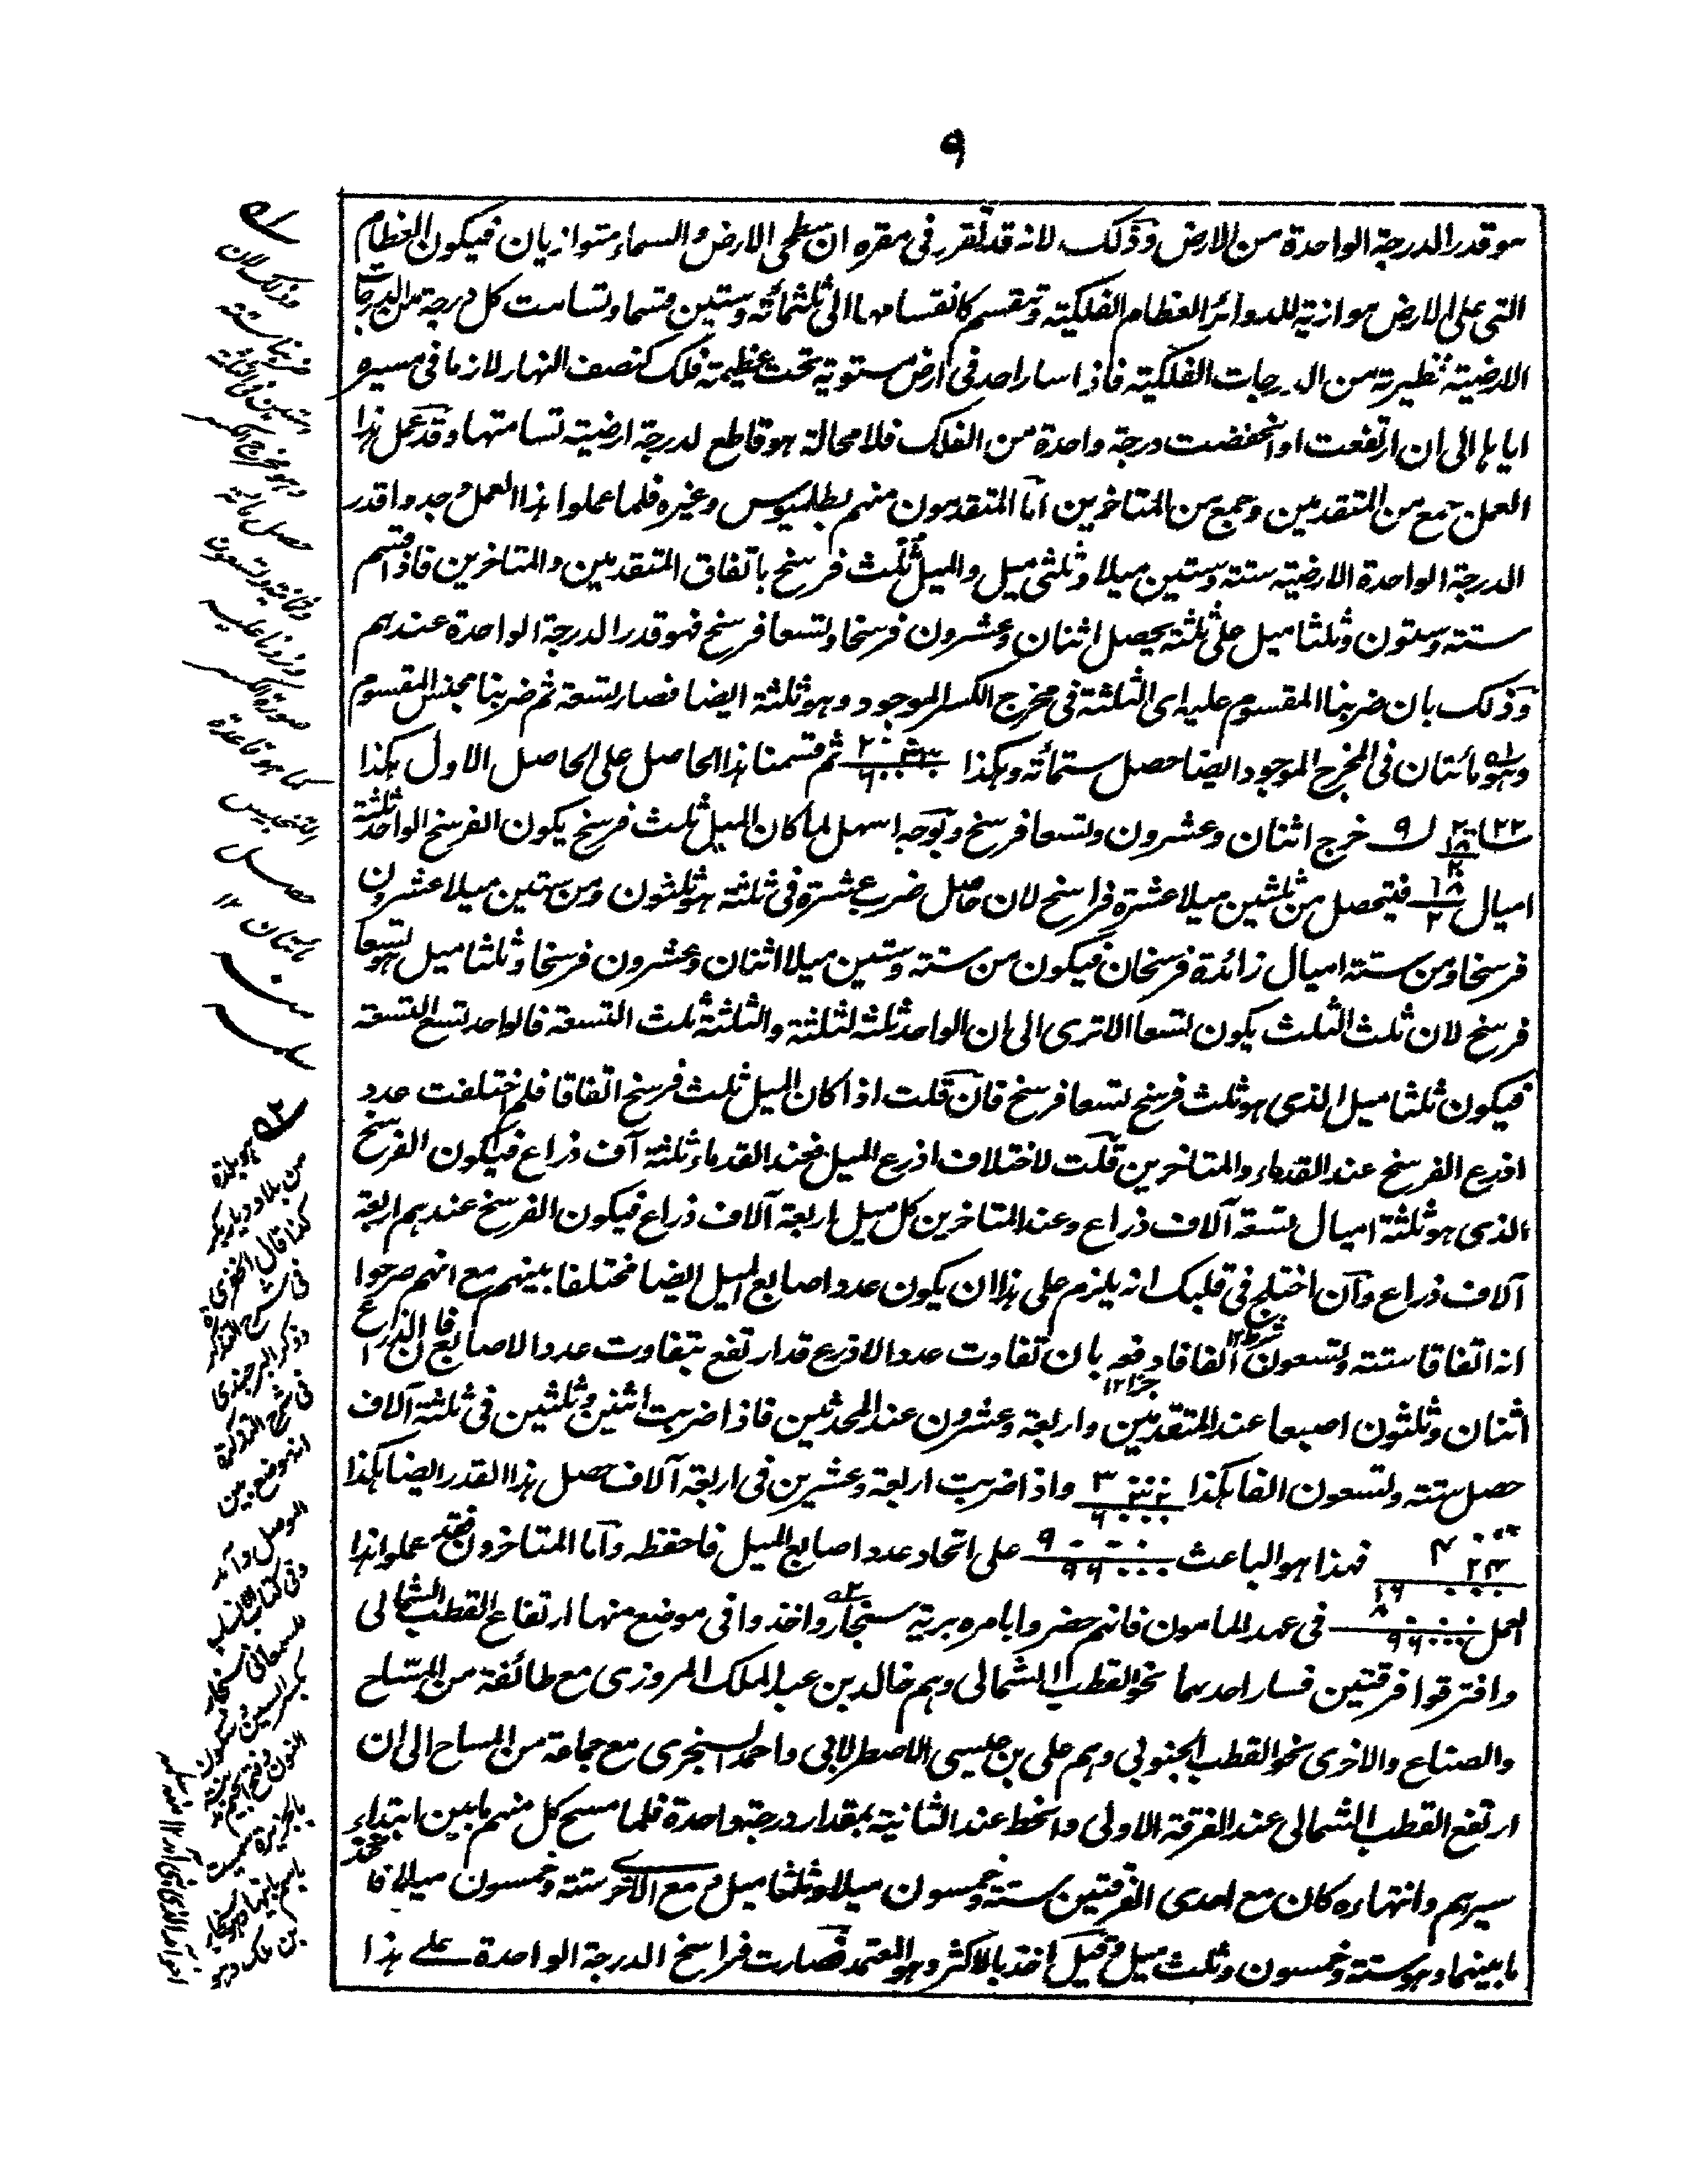 ٩
هو قدر الدرجة الواحدة من الارض وذلك لانه قد تقرر فى مقره ان سطحى الارض والسماء متوازيان فيكون العظام
التى على الارض موازية للدوائر العظام الفلكية وتنقسم كانقسامها الى ثلثمائة وستين قسما وتسامت كل درجة من الدرجات
الارضية نظيرته من الدرجات الفلكية فاذا سار احد فى ارض مستوية تحت عظيمة فلك كنصف النهار لازما فى مسيره
اياها الى ان ارتفعت او انخفضت درجة واحدة من الفلك فلا محالة هو قاطع لدرجة ارضية تسامتها وقد عمل هذا
العمل جمع من المتقدمين وجمع من المتاخرين اما المتقدمون منهم بطلميوس وغيره فلما عملوا هذا العمل وجدوا قدر
الدرجة الواحدة الارضية ستة وستين ميلا وثلثى ميل والميل ثلث فرسخ باتفاق المتقدمين والمتاخرين فاذا قسم
ستة وستون وثلثا ميل على ثلثة يحصل اثنان وعشرون فرسخا وتسعا فرسخ فهو قدر الدرجة الواحدة عندهم
وذلك بان ضربنا المقسوم عليه اى الثلثة فى مخرج الكسر الموجود وهو ثلثة ايضا فصار تسعة ثم ضربنا مجنس المقسوم
وهو مائتان فى المخرج الموجود ايضا حصل ستمائة وهكذا ثم قسمنا هذا الحاصل على الحاصل الاول هكذا
خرج اثنان وعشرون وتسعا فرسخ وبوجه اسهل لما كان الميل ثلث فرسخ يكون الفرسخ الواحد ثلثة
اميال فيتحصل من ثلثين ميلا عشرة فراسخ لان حاصل ضرب عشرة فى ثلثة هو ثلثون ومن ستين ميلا عشرون
فرسخا ومن ستة اميال زائدة فرسخان فيكون من ستة وستين ميلا اثنان وعشرون فرسخا وثلثا ميل هو تسعا
فرسخ لان ثلث الثلث يكون تسعا الا ترى الى ان الواحد ثلث لثلثة والثلثة ثلث التسعة فالواحد تسع التسعة
فيكون ثلثا ميل الذى هو ثلث فرسخ تسعا فرسخ فان قلت اذا كان الميل ثلث فرسخ اتفاقا فلم اختلفت عدد
اذرع الفرسخ عند القدماء والمتاخرين قلت لاختلاف اذرع الميل فعند القدماء ثلثة آلاف ذراع فيكون الفرسخ
الذى هو ثلثة اميال تسعة آلاف ذراع وعند المتاخرين كل ميل اربعة آلاف ذراع فيكون الفرسخ عندهم اربعة
آلاف ذراع وان اختلج فى قلبك انه يلزم على هذا ان يكون عدد اصابع الميل ايضا مختلفا بينهم مع انهم صرحوا
انه اتفاقا ستة وتسعون الفا فادفعه بان تفاوت عدد الاذرع قد ارتفع بتفاوت عدد الاصابع فان الذراع
اثنان وثلثون اصبعا عند المتقدمين واربعة وعشرون عند المحدثين فاذا ضربت اثنين وثلثين فى ثلثة آلاف
حصل ستة وتسعون الفا هكذا واذا ضربت اربعة وعشرين فى اربعة آلاف حصل هذا القدر ايضا هكذا
فهذا هو الباعث على اتحاد عدد اصابع الميل فاحفظه واما المتاخرون فقد عملوا هذا
العمل فى عهد المامون فانهم حضروا بامره برية سنجار واخذوا فى موضع منها ارتفاع القطب الشمالى
وافترقوا فرقتين فسار احدهما نحو القطب الشمالى وهم خالد بن عبد الملك المروزى مع طائفة من المساح
والصناع والاخرى نحو القطب الجنوبى وهم على بن عيسى الاصطرلابى واحمد السنجرى مع جماعة من المساح الى ان
ارتفع القطب الشمالى عند الفرقة الاولى وانحط عند الثانية بمقدار درجة واحدة فلما مسح كل منهم ما بين ابتداء
سيرهم وانتهاءه كان مع احدى الفرقتين ستة وخمسون ميلا وثلثا ميل ومع الاخرى ستة وخمسون ميلا فاخذ
ما بينهما وهو ستة وخمسون وثلث ميل وقيل اخذ بالاكثر وهو المعتمد فصارت فراسخ الدرجة الواحدة على هذا
وذلك لان
ضربنا ستة
وستين فى الثلثة
وهو مخرج الكسر
حصل مائة
وثمانية وتسعون
وزدنا عليه
صورة الكسر
كما هو قاعدة
التجنيس
حصل
مائتان ١٢
هو بلدة
من بلاد ديار بكر
كذا قال الخفرى
فى شرح التذكرة
وذكر البرجندى
فى شرح التذكرة
انه موضع بين
الموصل وآمد